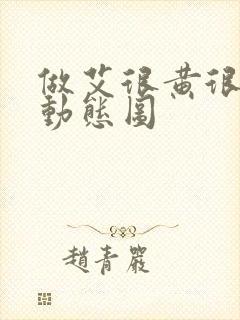 做艾很黄很
動態圖
趙青嚴